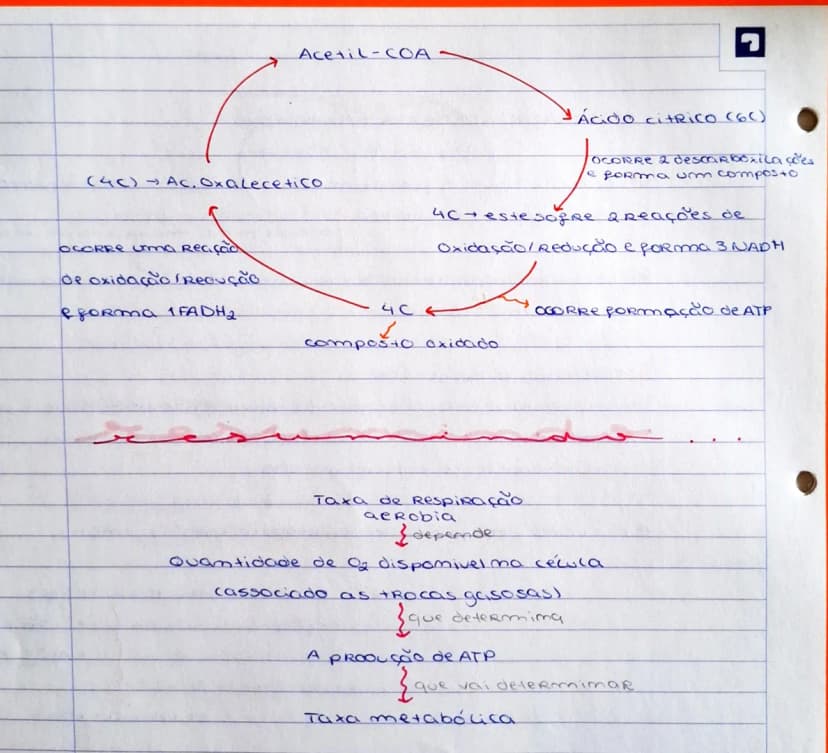 Acetil-COA
Ácido citrico (6C)
ocorre 2 descarboxilações
e forma um composto
(4C) → Ac. Oxalecetico
4C → este sofre 2 reações de
oxidação/redução e forma 3 NADH
ocorre uma reação
de oxidação/redução
e forma 1 FADH2
4C
ocorre formação de ATP
composto oxidado
resumindo ...
Taxa de respiração
aerobia
depende
Quantidade de O2 disponivel na célula
(associado as trocas gasosas)
que determina
A produção de ATP
que vai determinar
Taxa metabólica